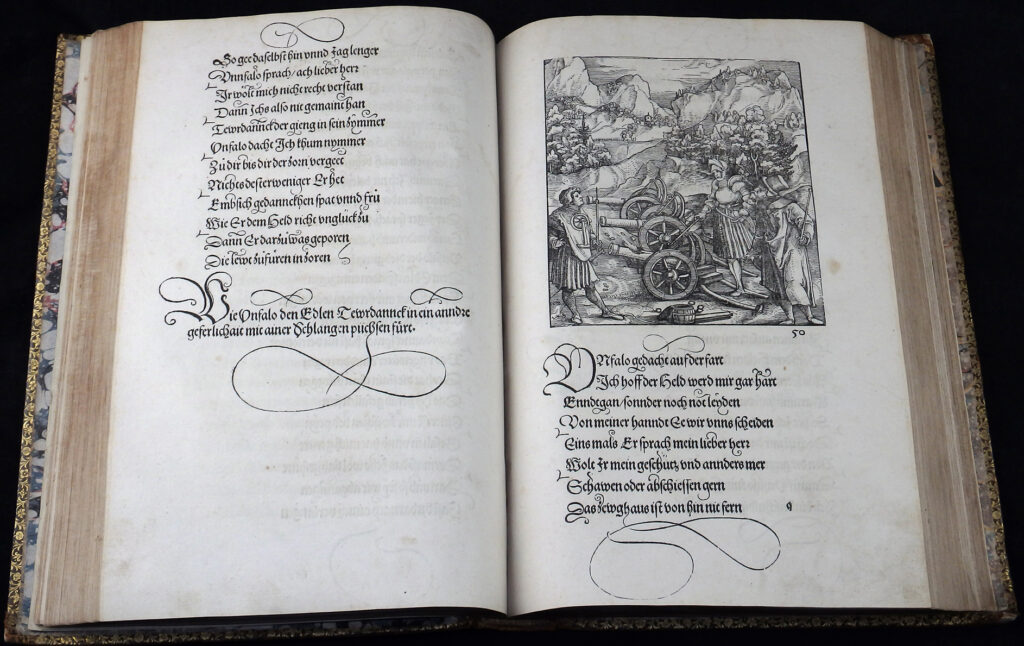 So gee daselbst hin vnnd sag lenger
Vnnfalo sprach / ach lieber herr
Jr wöle mich nicht recht verstan
Dann Jchs also nit gemaint han
Tewrdannck der gieng in sein zymmer
Vnfalo dacht Jch khum nymmer
Zu dir bis dir der zorn vergeet
Nichts desterweniger Er het
Embsich gedannckhen spat vnnd frü
Wie Er dem Held richt vnglück zů
Dann Er darzů was geporen
Die lewt zůfüren in zoren
Wie Vnfalo den Edlen Tewrdannck in ein anndre
geferlichait mit ainer Schlanngen puchsen fürt.
50
VNfalo gedacht auf der fart
Jch hoff der Held werd mir gar hart
Enndtgan / sonnder noch not leyden
Von meiner hanndt Ee wir vnns scheiden
Eins mals Er sprach mein lieber herr
Wolt Jr mein geschütz vnd annders mer
Schawen oder abschiessen gern
Das zewghaus ist von hin nit fern
q